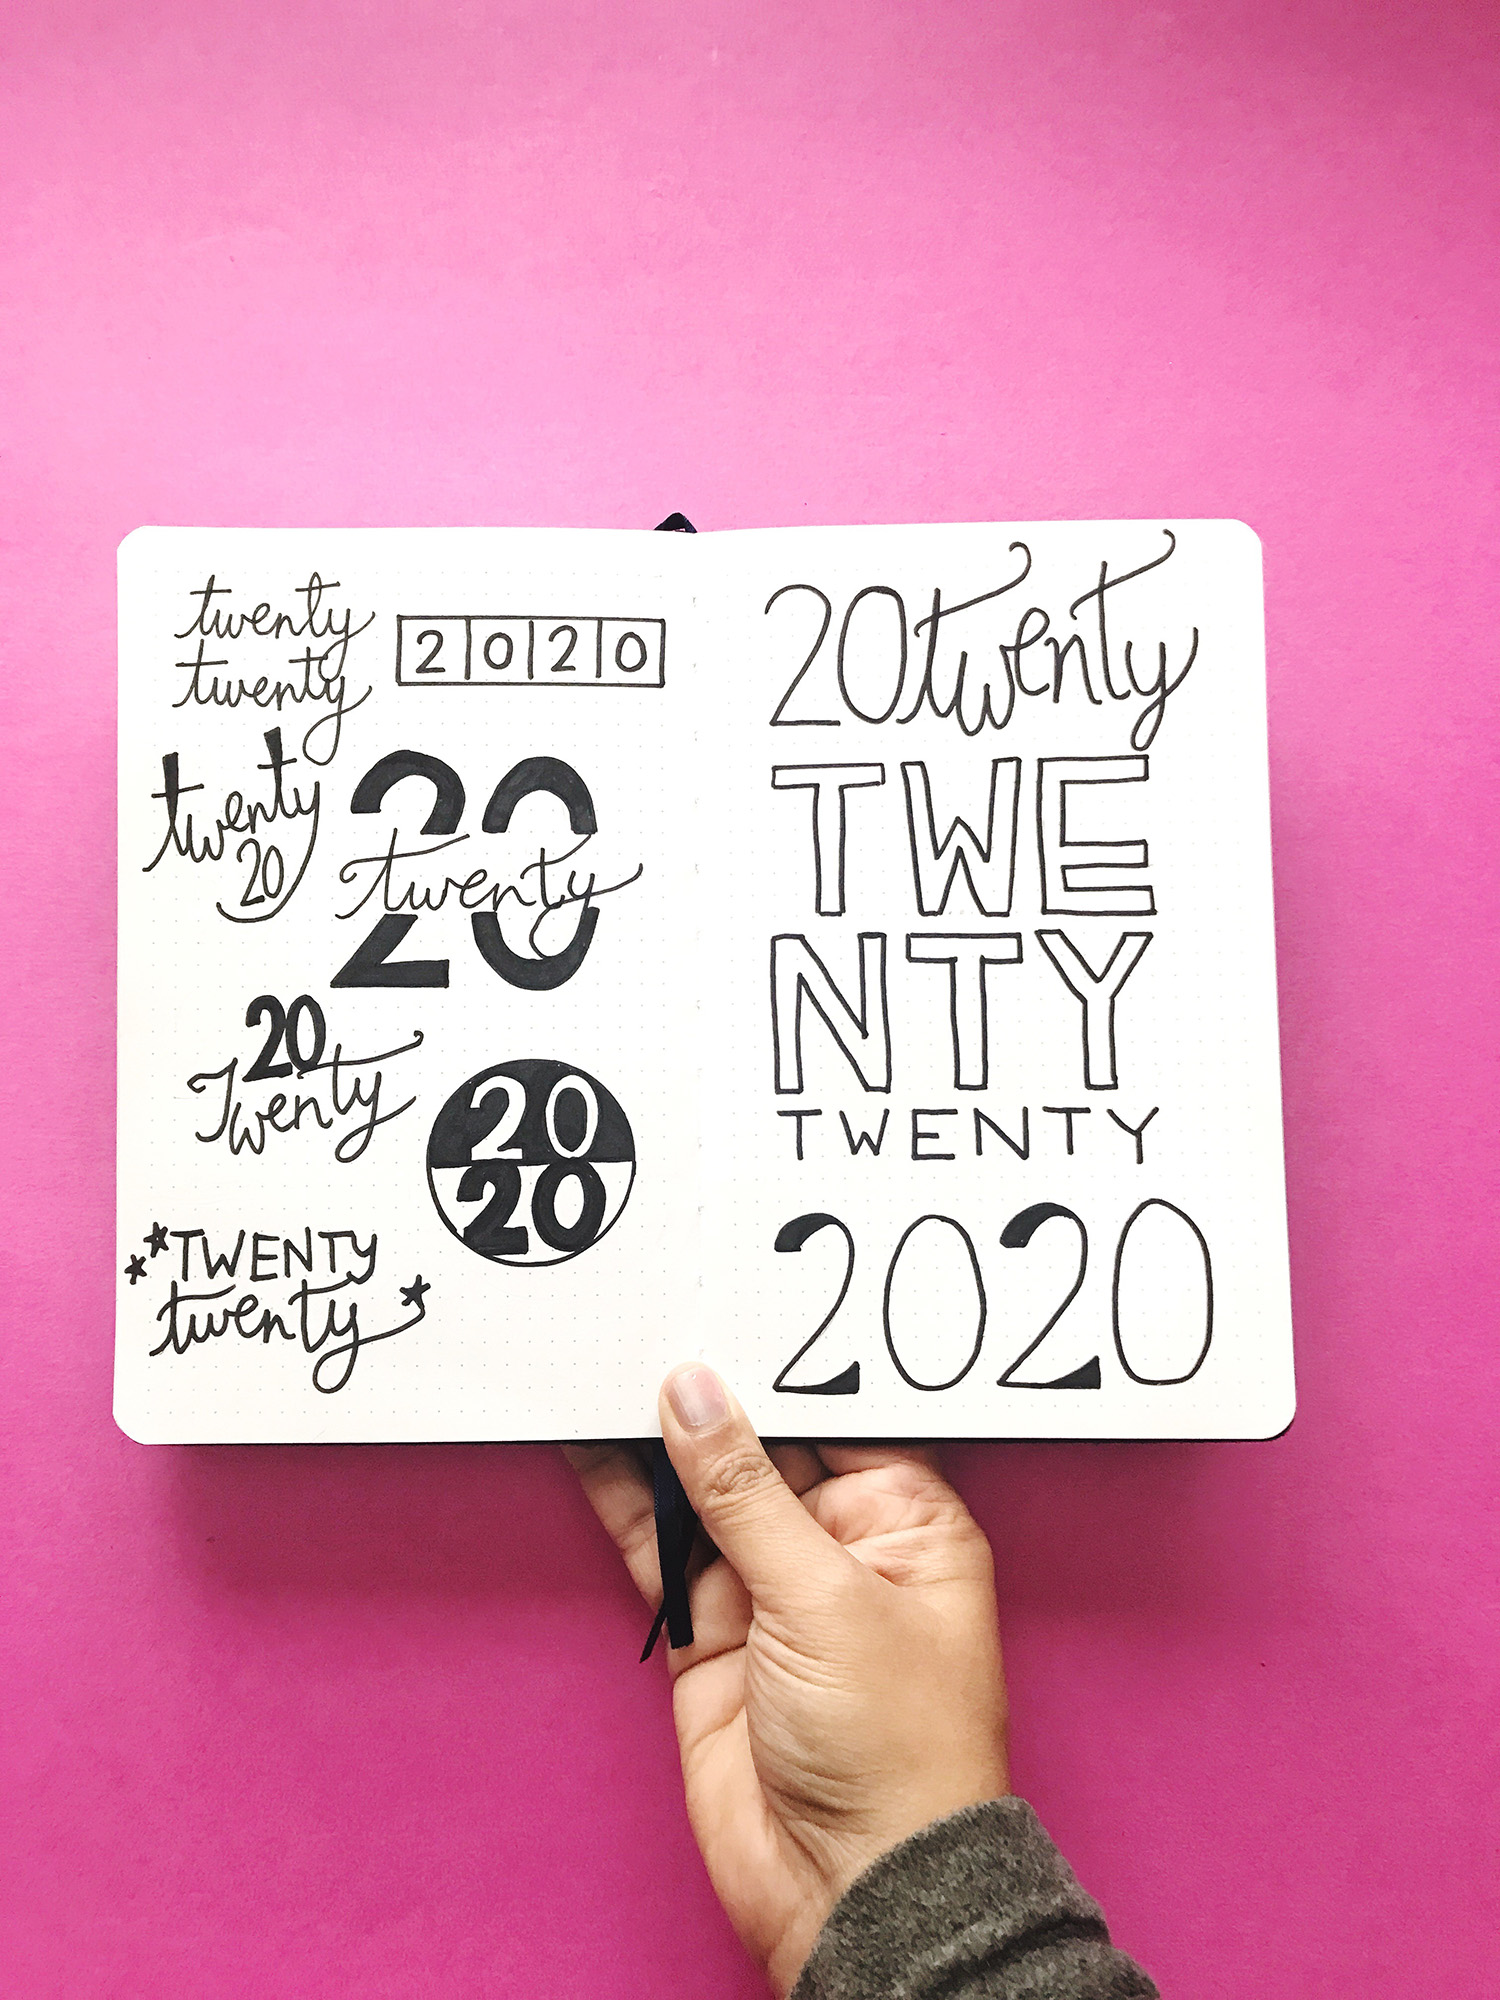 twenty
twenty
2020
twenty
20
20
twenty
20
Twenty
20
20
TWENTY
twenty
20twenty
TWE
NTY
TWENTY
2020